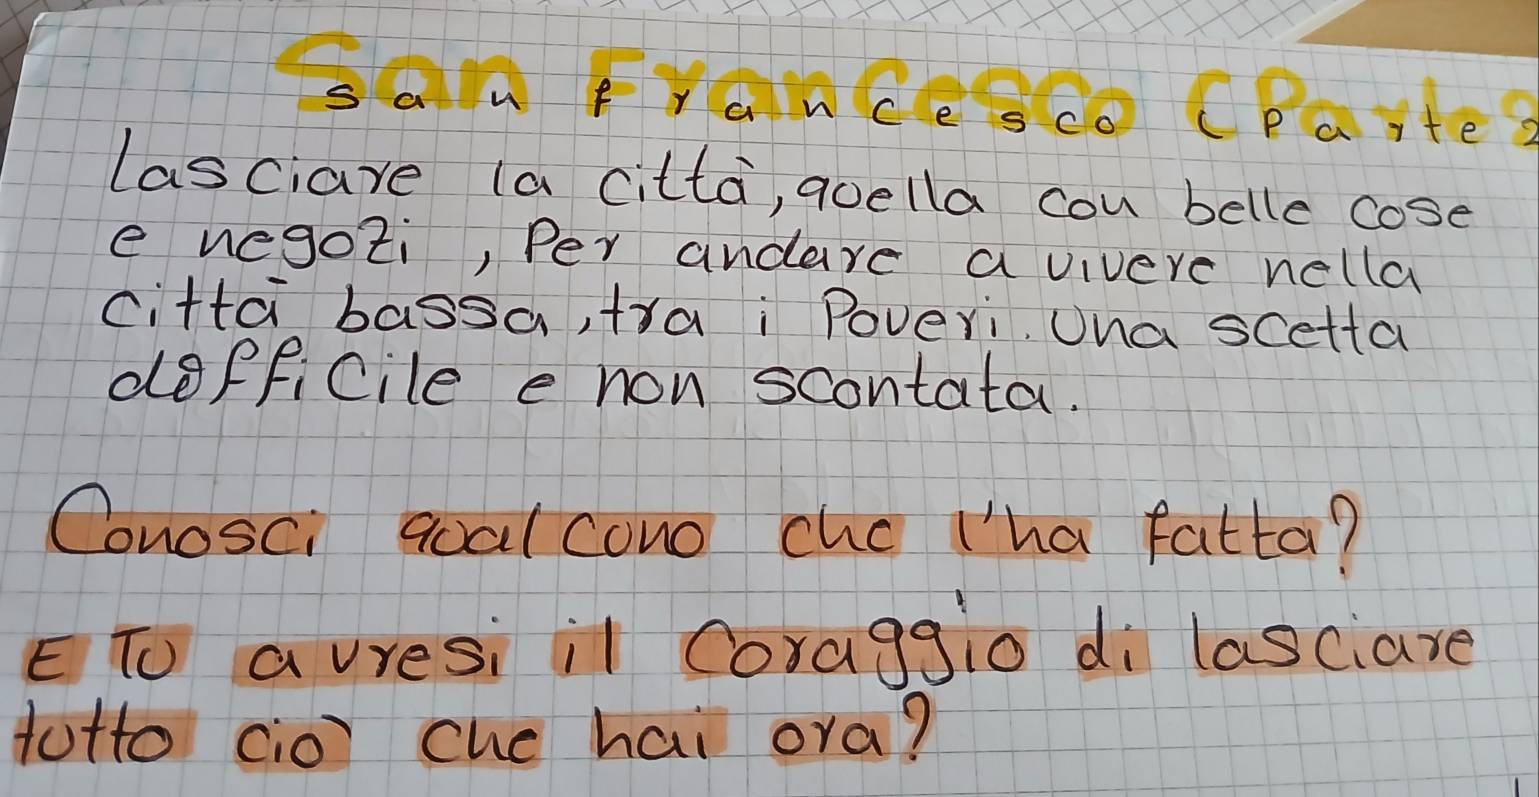 San Francesco (Parte 2
lasciare la città, quella con belle cose
e negozi, Per andare a vivere nella
città bassa, tra i Poveri. Una scetta
difficile e non scontata.
Conosci qualcuno che l'ha fatta?
E TU avresi il Coraggio di lasciare
tutto ciò che hai ora?